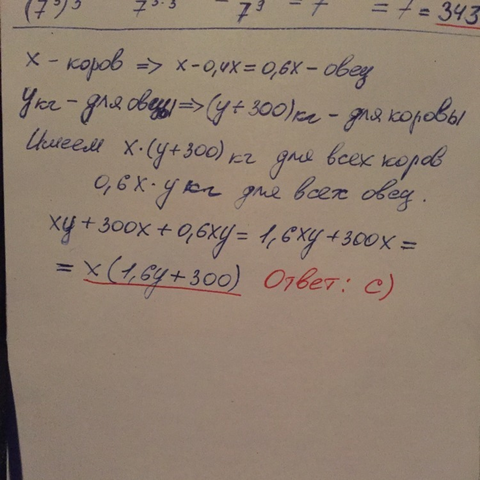 = 7 = 343
x - коров => x - 0,4x = 0,6x - овец
y кг - для овцы => (y + 300) кг - для коровы
Имеем x · (y + 300) кг для всех коров
0,6x · y кг для всех овец.
xy + 300x + 0,6xy = 1,6xy + 300x =
= x (1,6y + 300) Ответ: c)